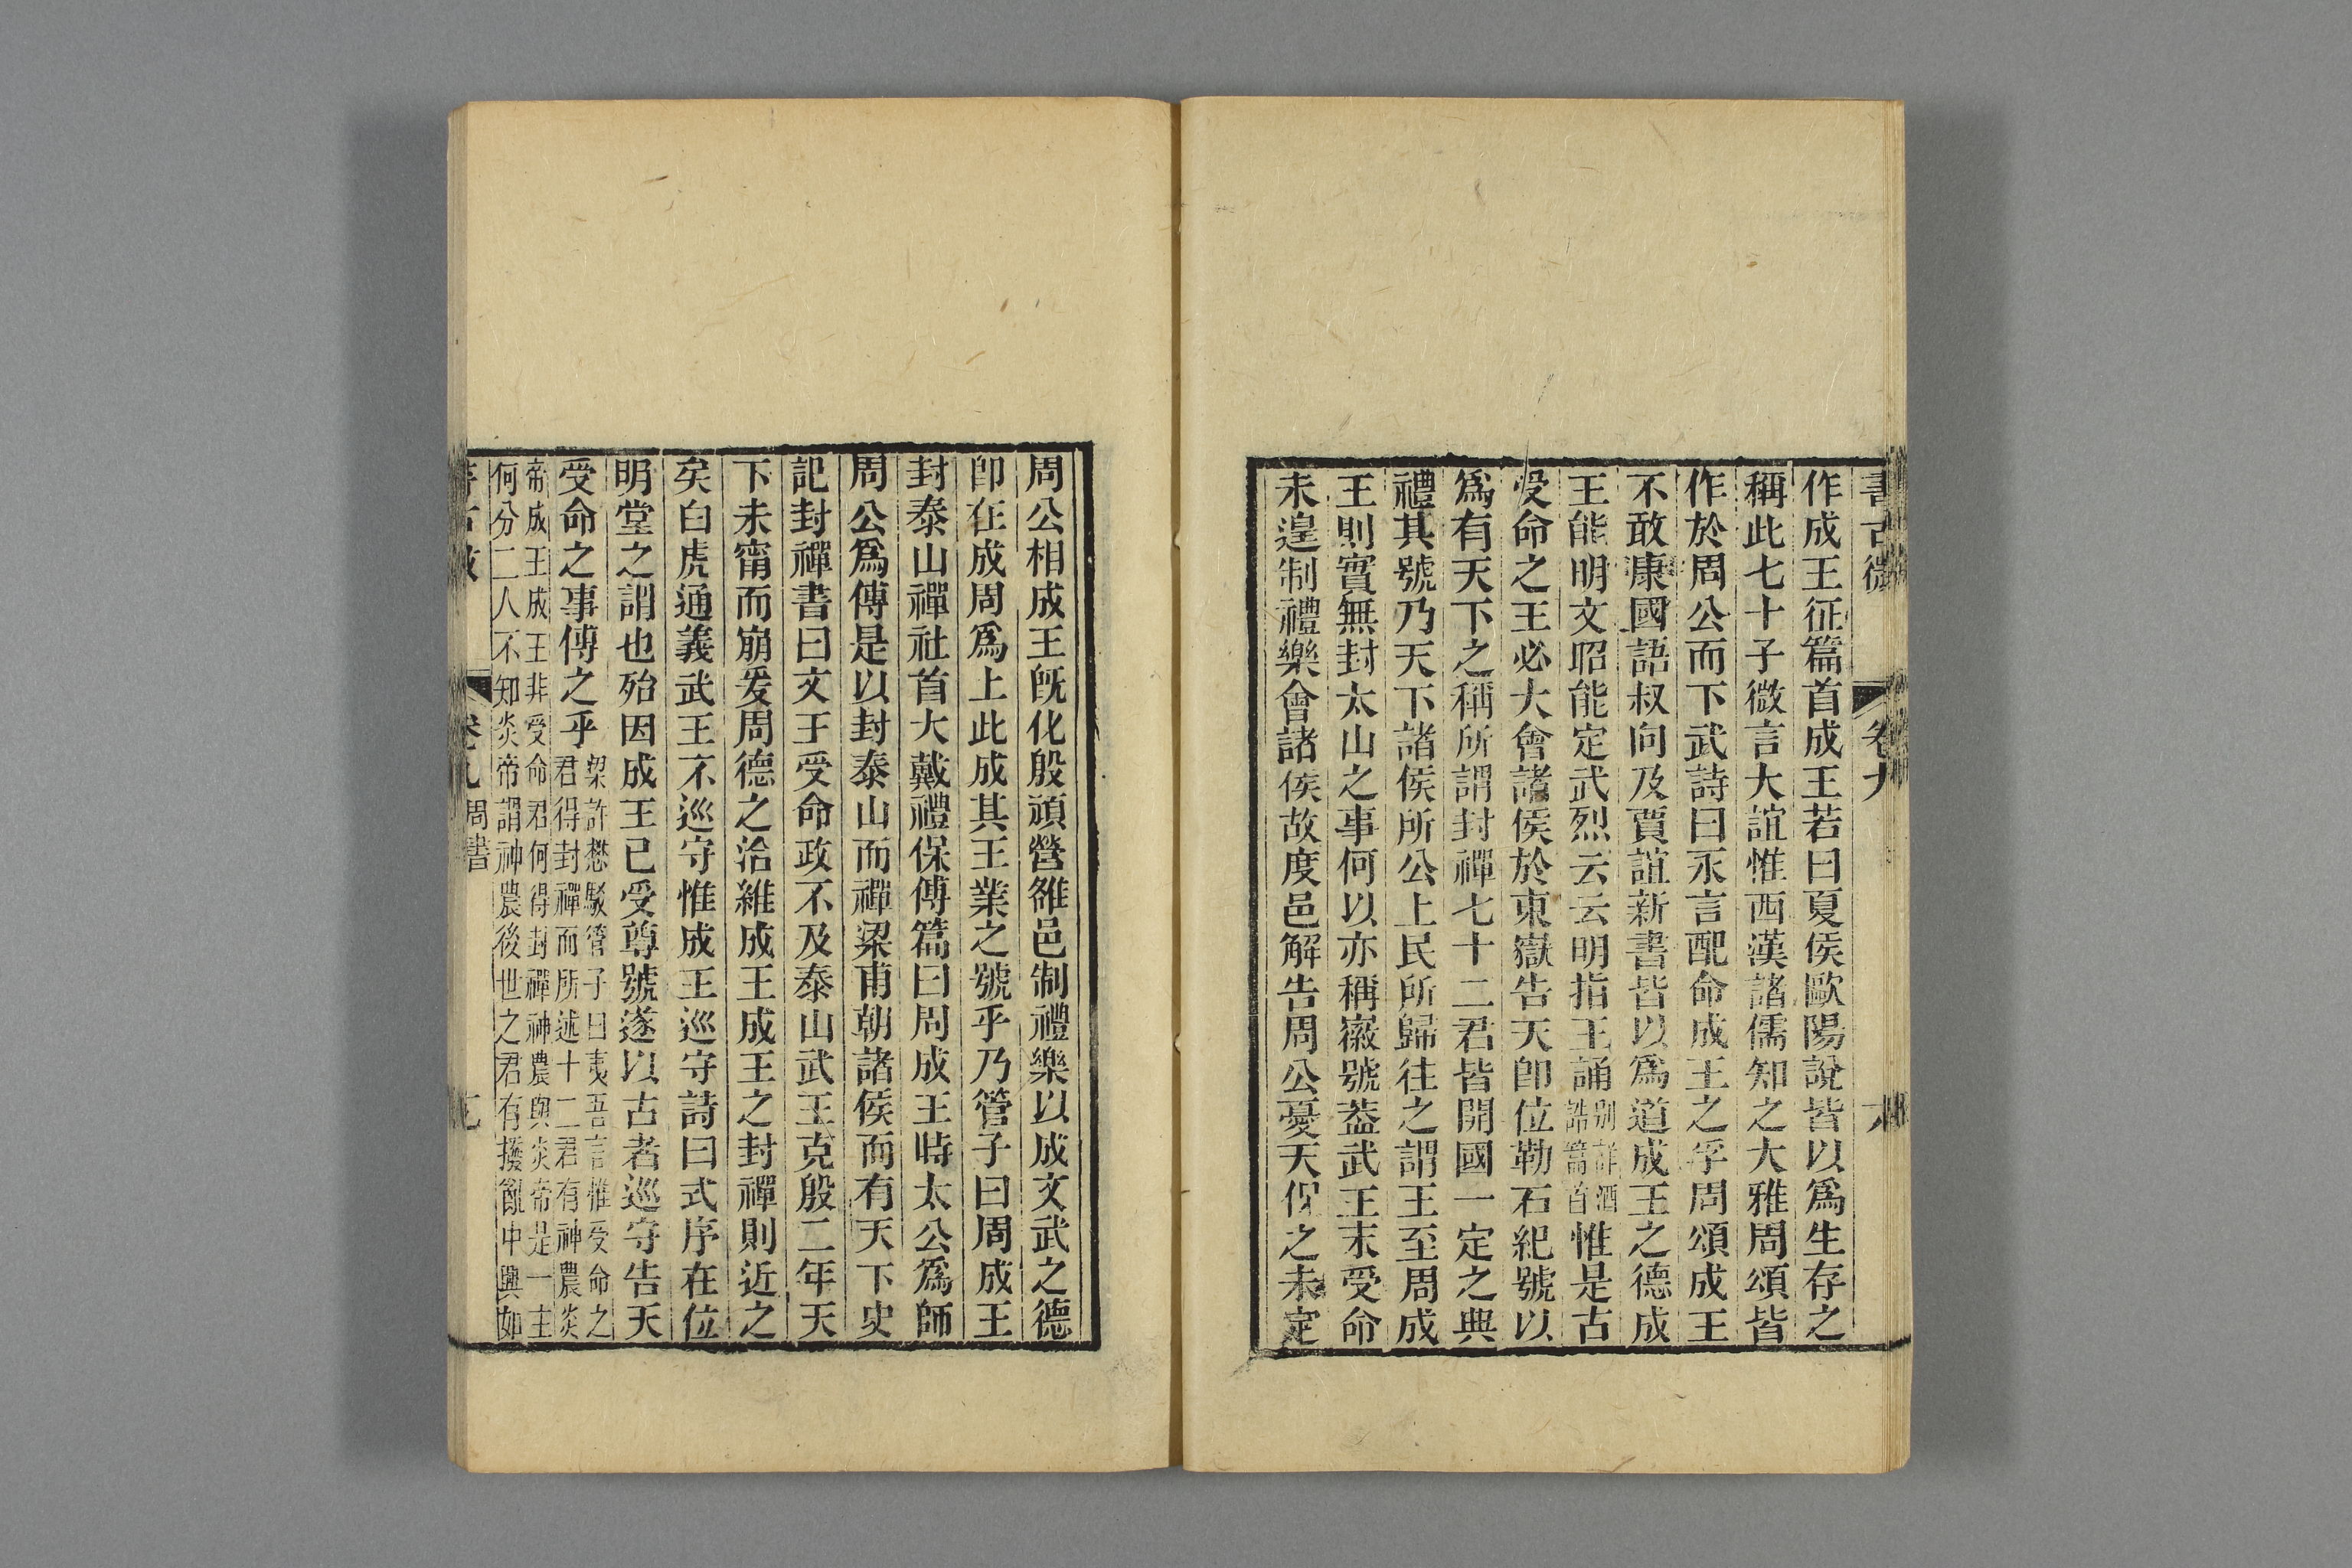 書古微 卷九 六
作成王征篇首成王若曰夏侯歐陽說皆以爲生存之
稱此七十子微言大誼惟西漢諸儒知之大雅周頌皆
作於周公而下武詩曰永言配命成王之孚周頌成王
不敢康國語叔向及賈誼新書皆以爲道成王之德成
王能明文昭能定武烈云云明指王誦别詳酒誥篇首惟是古
受命之王必大會諸侯於東嶽告天卽位勒石紀號以
爲有天下之稱所謂封禪七十二君皆開國一定之典
禮其號乃天下諸侯所公上民所歸往之謂王至周成
王則實無封太山之事何以亦稱徽號葢武王末受命
未遑制禮樂會諸侯故度邑解告周公憂天保之未定
周公相成王旣化殷頑營雒邑制禮樂以成文武之德
卽在成周爲上此成其王業之號乎乃管子曰周成王
封泰山禪社首大戴禮保傅篇曰周成王時太公爲師
周公爲傅是以封泰山而禪梁甫朝諸侯而有天下史
記封禪書曰文王受命政不及泰山武王克殷二年天
下未甯而崩爰周德之洽維成王成王之封禪則近之
矣白虎通義武王不巡守惟成王巡守詩曰式序在位
明堂之謂也殆因成王已受尊號遂以古者巡守告天
受命之事傅之乎梁許懋駁管子曰夷吾言惟受命之
君得封禪而所述十二君有神農炎
帝成王成王非受命君何得封禪神農與炎帝是一主
何分二人不知炎帝謂神農後世之君有撥亂中興如
卷九 周書